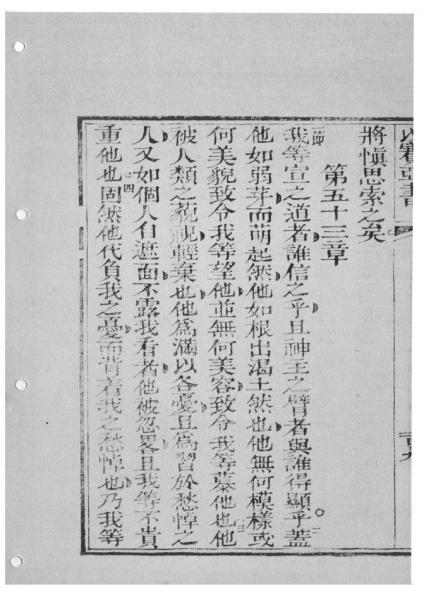 以賽亞書
將愼思索之矣
第五十三章
我等宣之道者誰信之乎且神主之臂者與誰得顯乎蓋
他如弱芽而萌起然他如根出渴土然也他無何模樣或
何美貌致令我等望他並無何美容致令我等慕他也他
被人類之藐視輕棄也他爲滿以各憂且爲習於愁悼之
人又如個人自遮面不露我看者他被忽畧且我等不貴
重他也固然他代負我之憂而背着我之愁悼也乃我等